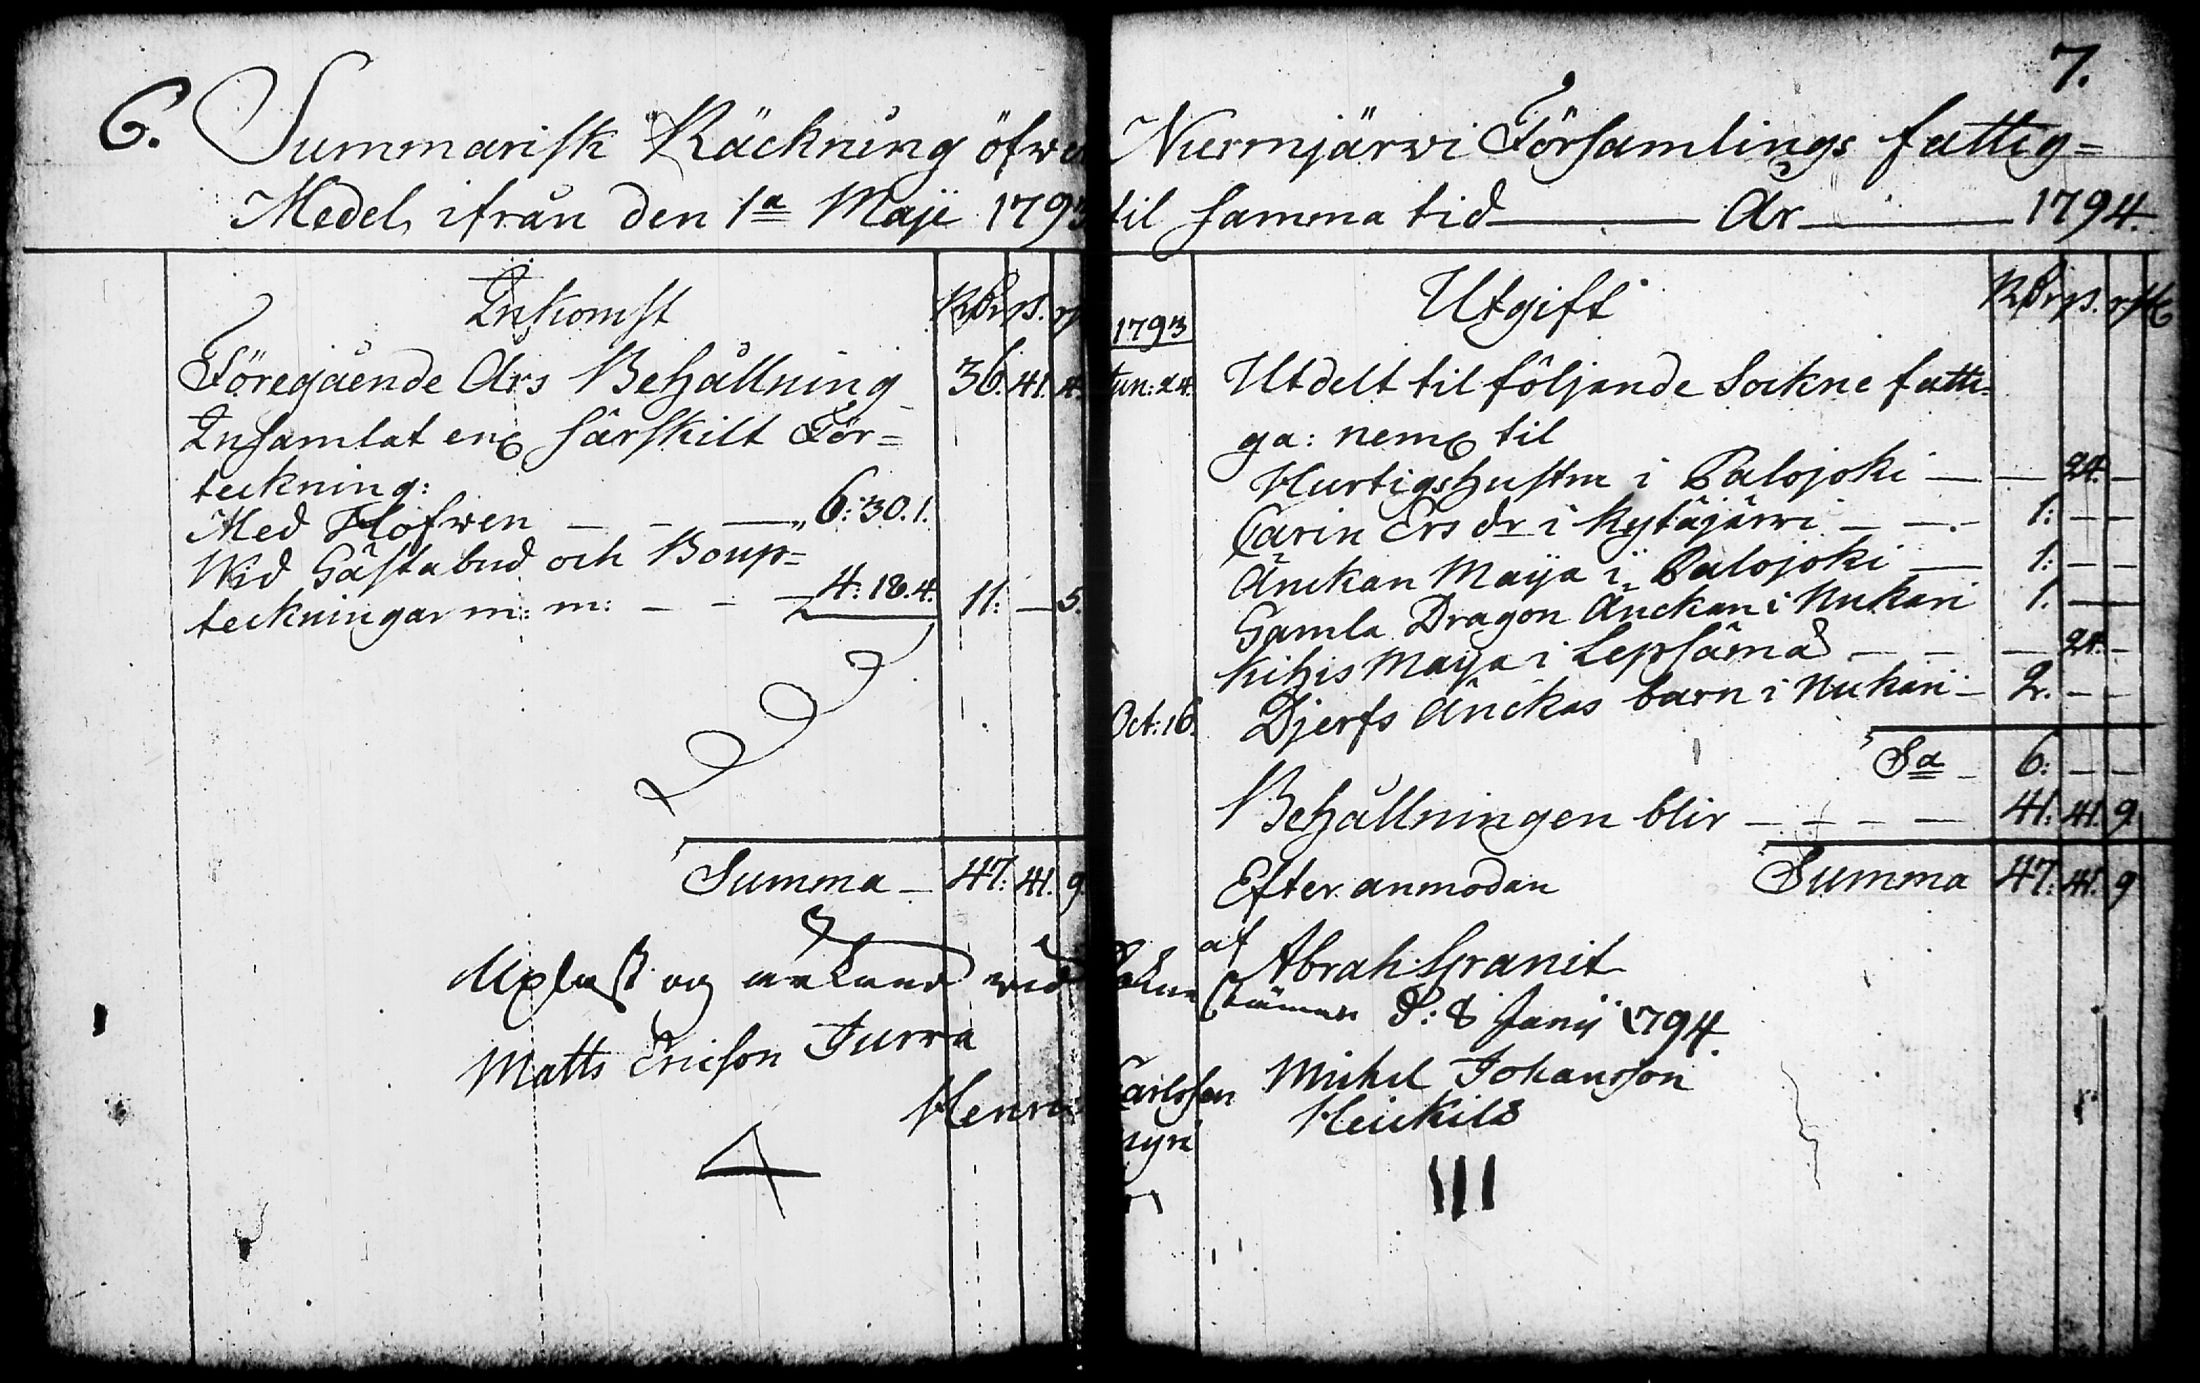 6.
Summarisk Räckning öfwer
Medel, ifrån den 1a Maji 1793
Inkomst Rdr ß. r
Föregående Års Behållning 36. 41. 4.
Insamlat enl. särskilt För=
teckning:
Med Håfwen — — — 6: 30. 1.
Wid Gästabud och Boup=
teckningar m: m: — — — 4: 18. 4. 11: — 5.
Summa — 47: 41. 9.
Uplest og erkänd wid
Matts Ericson Jurwa
Henric
7.
Nurmjärwi Församlings fattig=
til samma tid — År — 1794.
1793 Utgift Rdr ß. r
Jun: 24. Utdelt til följande Sockne fatti-
ga: neml. til
Hurtigs hustru i Palojoki — — 24. —
Carin Ers dr i Kytäjärwi — — 1: — —
Änckan Maija i Palojoki — 1: — —
Gamla Dragon Änckan i Nukari 1. — —
Kihis Maija i Lepsämä — — — 24. —
Oct: 16. Djerfs Änckas barn i Nukari — 2. — —
Sa — 6: — —
Behållningen blir — — — — 41: 41. 9
Efter anmodan Summa 47: 41. 9
af
Abrah. Granit
Sokne Stämman d: 8 Junij 1794.
Carlsson Michel Johansson
Heickilä